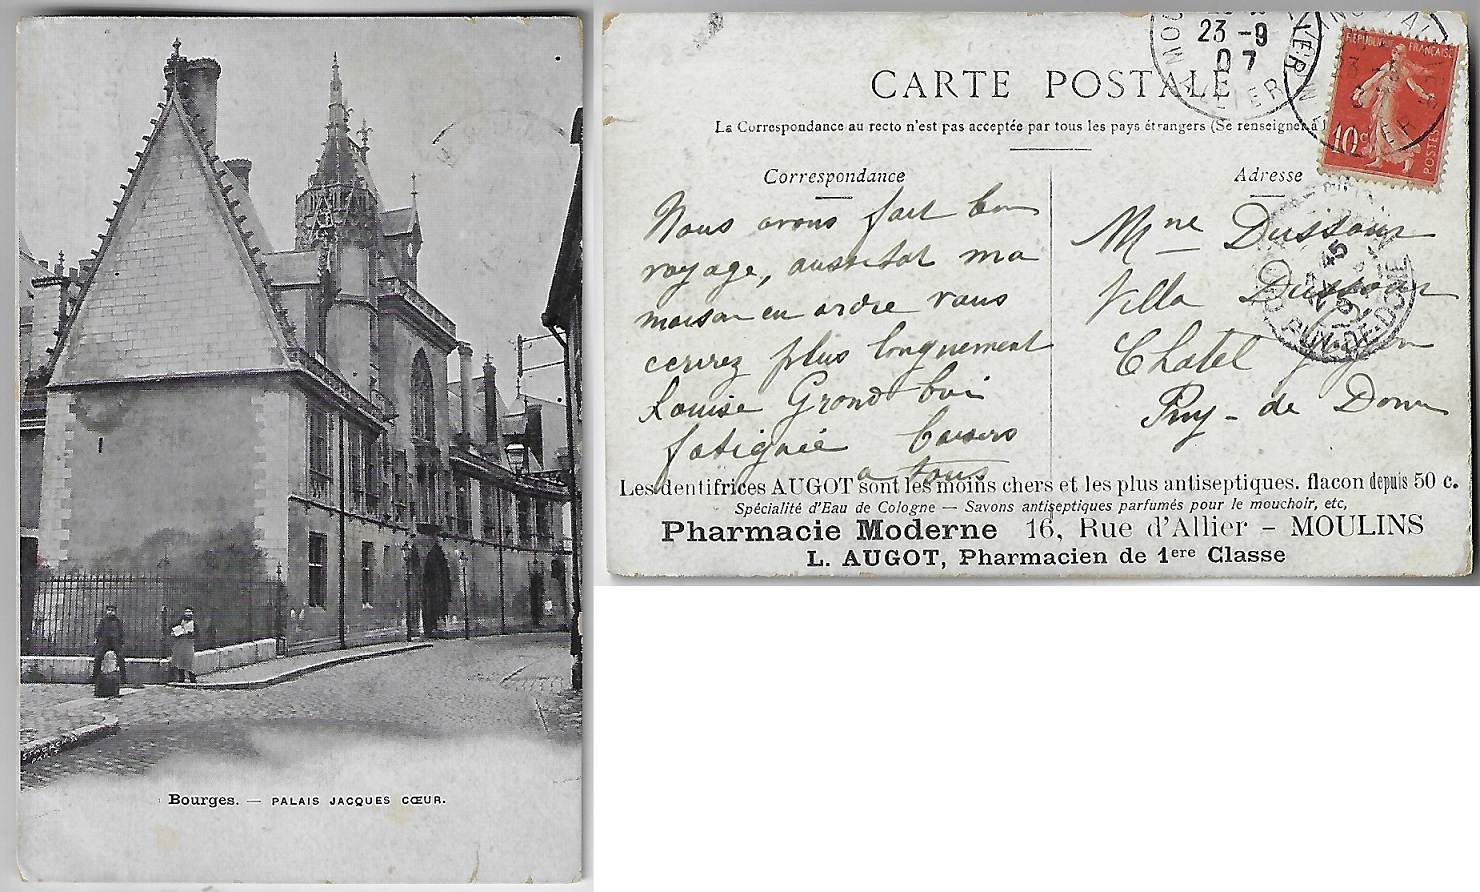 Bourges. — PALAIS JACQUES CŒUR.
CARTE POSTALE
La Correspondance au recto n'est pas acceptée par tous les pays étrangers (Se renseigner à
Correspondance
Nous avons fait bon
voyage, aussitot ma
maison en ordre vous
ecrirez plus longuement
Louise Grand bui
fatiguée baisers
a tous
Adresse
Mme Dussour
Villa Dussour
Chatel Guyon
Puy-de Dome
REPUBLIQUE FRANÇAISE
10c
POSTES
23-9
07
ALLIER
PUY-DE-DOME
Les dentifrices AUGOT sont les moins chers et les plus antiseptiques. flacon depuis 50 c.
Spécialité d'Eau de Cologne — Savons antiseptiques parfumés pour le mouchoir, etc,
Pharmacie Moderne 16, Rue d'Allier - MOULINS
L. AUGOT, Pharmacien de 1ere Classe